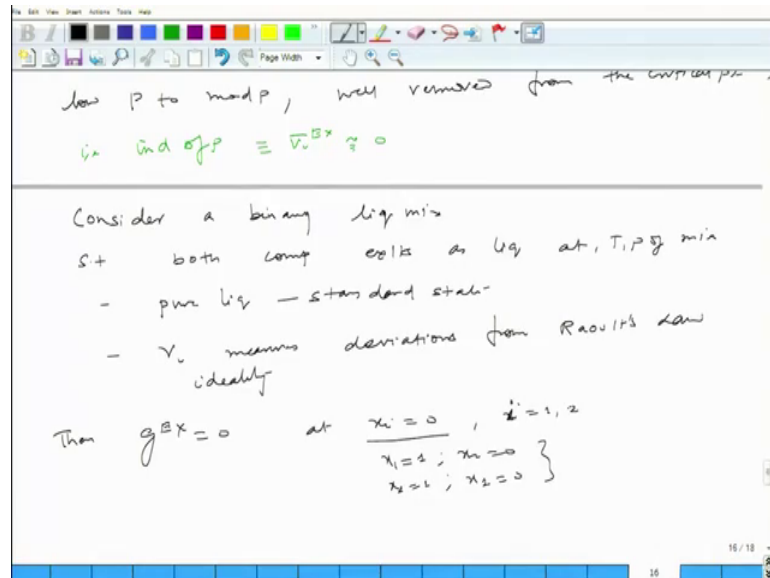 File Edit View Insert Actions Tools Help
Page Width
low P to mod P, well removed from the critical pt
i.e ind of P ≡ V̄ᵢᴱˣ ≈ 0
Consider a binary liq mix
s.t both comp exists as liq at T, P of mix
- pure liq - standard state
- γᵢ measures deviations from Raoult's Law
ideality
Then gᴱˣ = 0 at xᵢ = 0, i = 1, 2
x₁ = 1 ; x₂ = 0
x₂ = 1 ; x₁ = 0
16 / 18
16